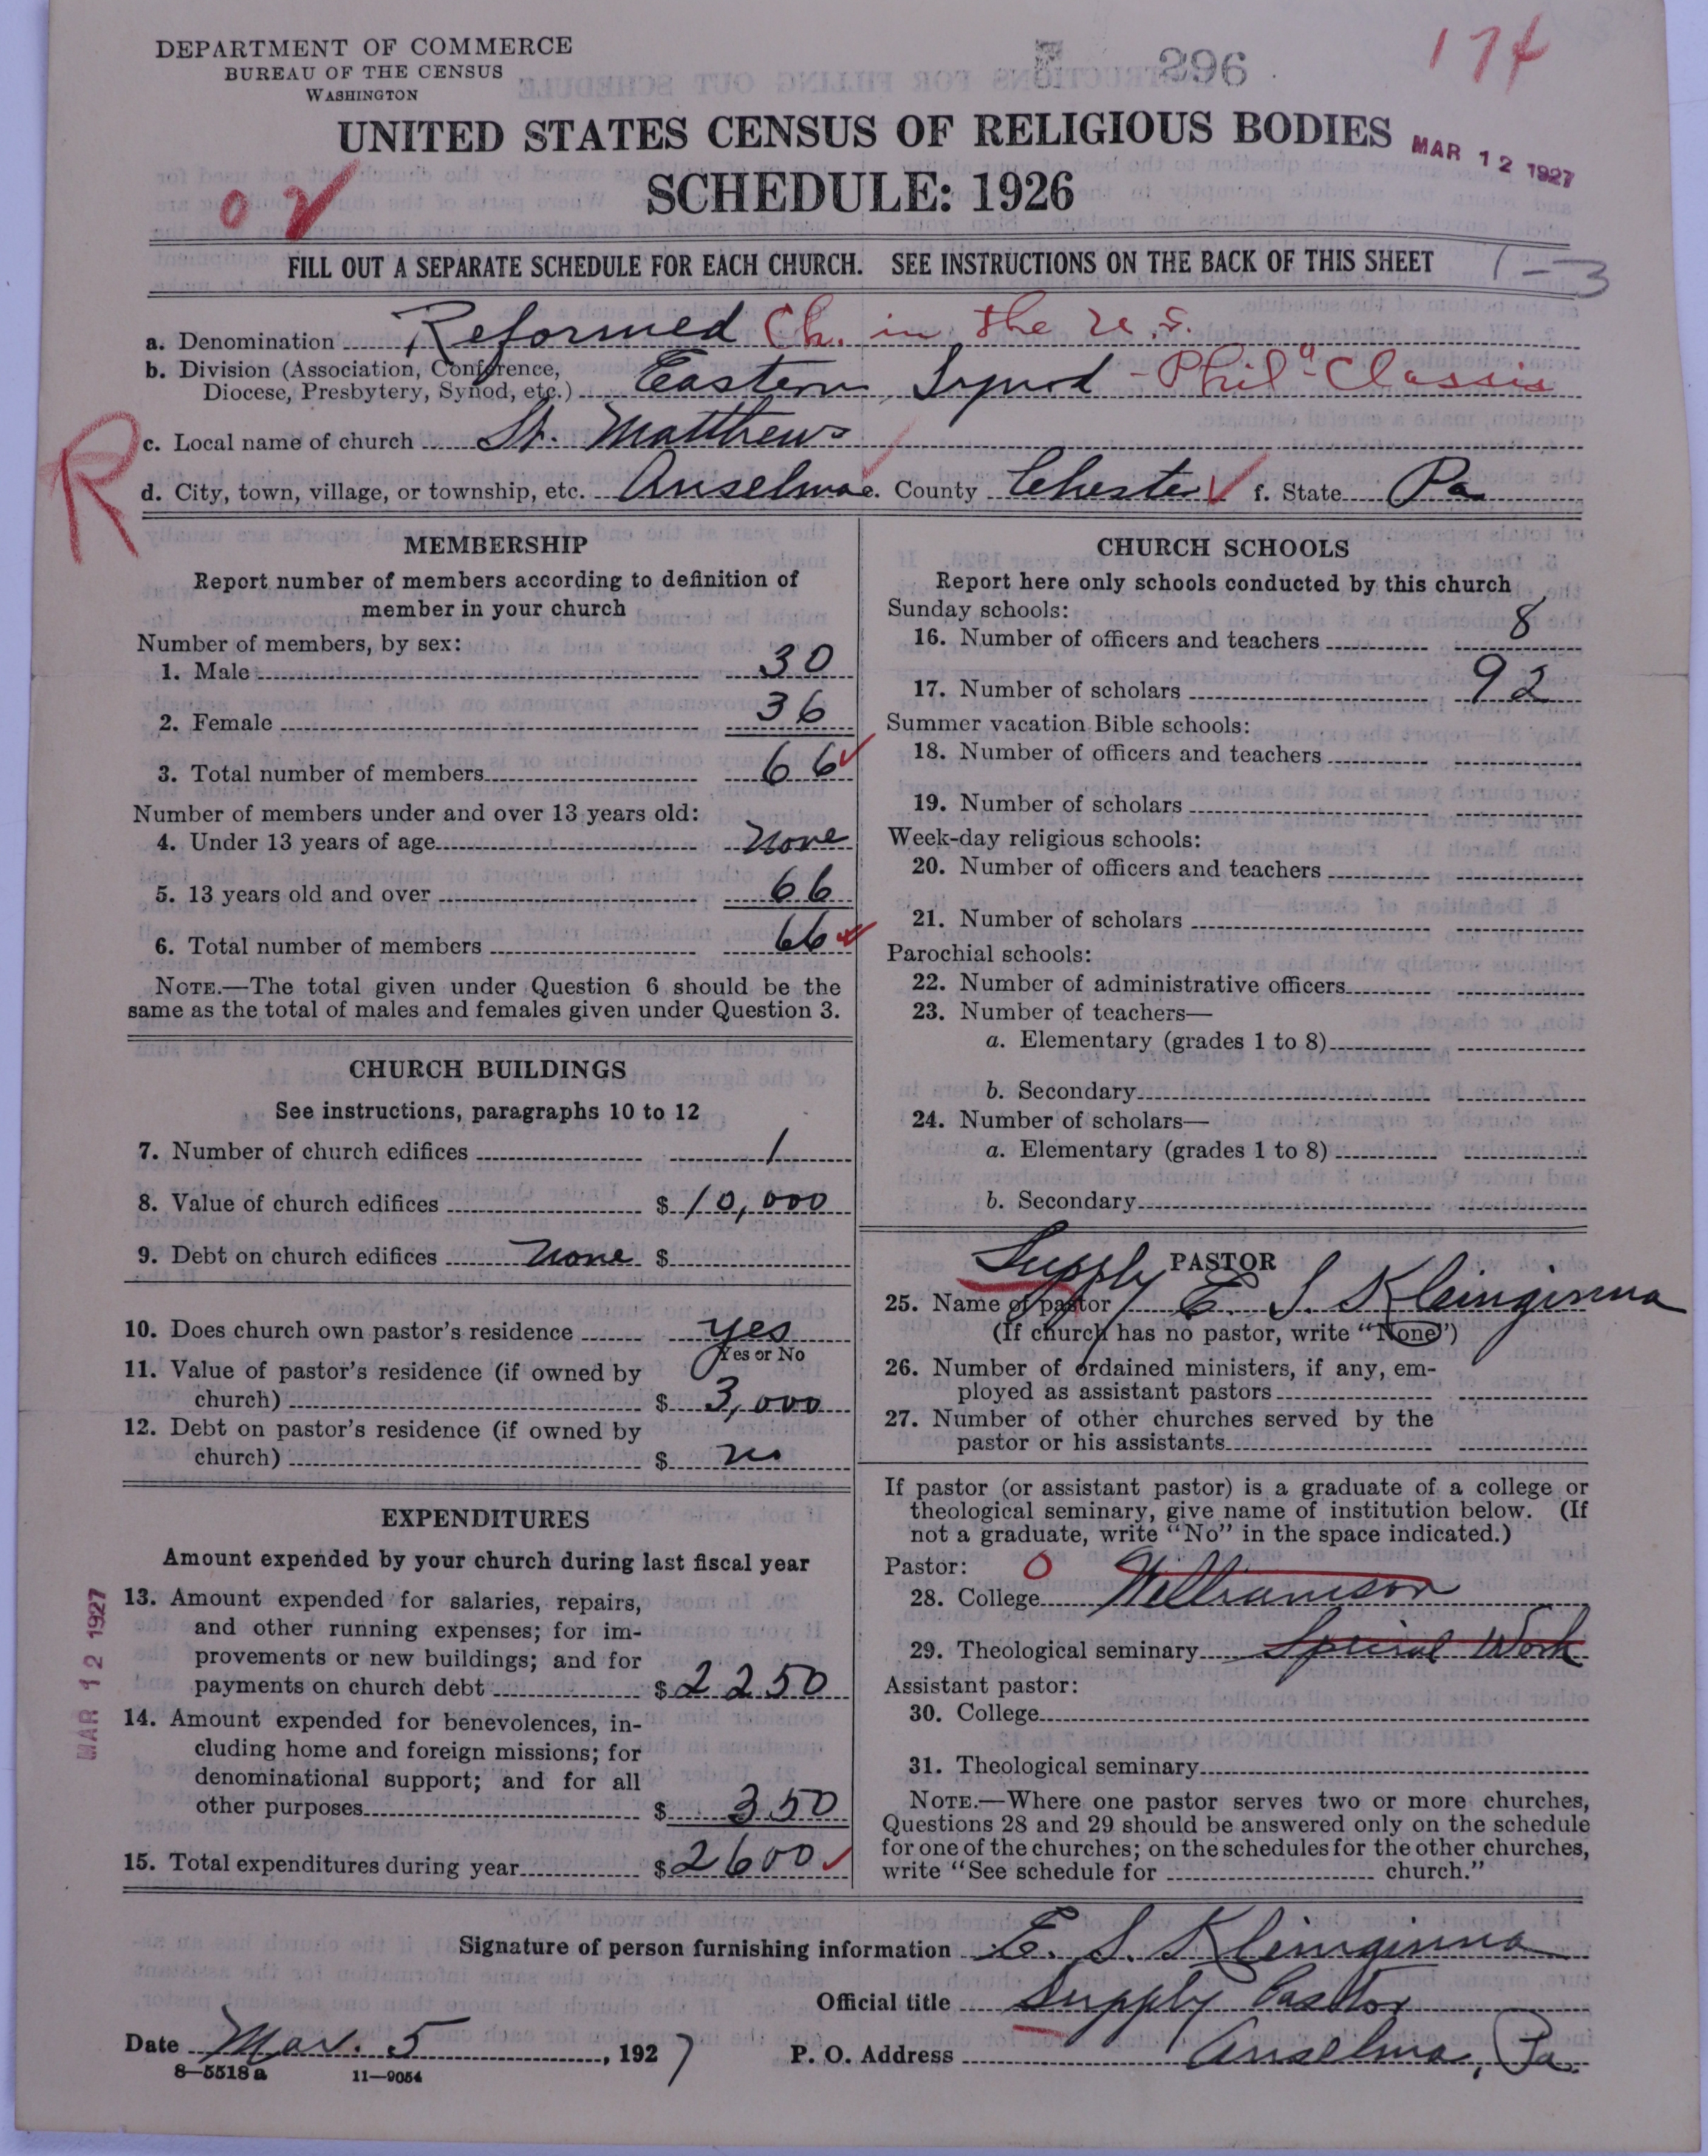 DEPARTMENT OF COMMERCE
BUREAU OF THE CENSUS
WASHINGTON
296
174
UNITED STATES CENSUS OF RELIGIOUS BODIES
MAR 12 1927
SCHEDULE: 1926
FILL OUT A SEPARATE SCHEDULE FOR EACH CHURCH. SEE INSTRUCTIONS ON THE BACK OF THIS SHEET
1-3
a. Denomination Reformed Ch. in the U.S.
b. Division (Association, Conference, Diocese, Presbytery, Synod, etc.) Eastern Synod - Phil" Classis
R
c. Local name of church St. Matthews
d. City, town, village, or township, etc. Anselma e. County Chester f. State Pa
MEMBERSHIP
Report number of members according to definition of
member in your church
Number of members, by sex:
1. Male 30
2. Female 36
3. Total number of members 66
Number of members under and over 13 years old:
4. Under 13 years of age None
5. 13 years old and over 66
6. Total number of members 66
NOTE.—The total given under Question 6 should be the
same as the total of males and females given under Question 3.
CHURCH BUILDINGS
See instructions, paragraphs 10 to 12
7. Number of church edifices 1
8. Value of church edifices $ 10,000
9. Debt on church edifices None $
10. Does church own pastor's residence yes
Yes or No
11. Value of pastor's residence (if owned by
church) $ 3,000
12. Debt on pastor's residence (if owned by
church) $ no
EXPENDITURES
Amount expended by your church during last fiscal year
13. Amount expended for salaries, repairs,
and other running expenses; for im-
provements or new buildings; and for
payments on church debt $ 2250
14. Amount expended for benevolences, in-
cluding home and foreign missions; for
denominational support; and for all
other purposes $ 350
15. Total expenditures during year $ 2600
MAR 12 1927
CHURCH SCHOOLS
Report here only schools conducted by this church
Sunday schools:
16. Number of officers and teachers 8
17. Number of scholars 92
Summer vacation Bible schools:
18. Number of officers and teachers
19. Number of scholars
Week-day religious schools:
20. Number of officers and teachers
21. Number of scholars
Parochial schools:
22. Number of administrative officers
23. Number of teachers—
a. Elementary (grades 1 to 8)
b. Secondary
24. Number of scholars—
a. Elementary (grades 1 to 8)
b. Secondary
Supply PASTOR
25. Name of pastor E. S. Kleinginna
(If church has no pastor, write "None")
26. Number of ordained ministers, if any, em-
ployed as assistant pastors
27. Number of other churches served by the
pastor or his assistants
If pastor (or assistant pastor) is a graduate of a college or
theological seminary, give name of institution below. (If
not a graduate, write "No" in the space indicated.)
Pastor: O
28. College Williamson
29. Theological seminary Special Work
Assistant pastor:
30. College
31. Theological seminary
NOTE.—Where one pastor serves two or more churches,
Questions 28 and 29 should be answered only on the schedule
for one of the churches; on the schedules for the other churches,
write "See schedule for church."
Signature of person furnishing information E. S. Kleinginna
Official title Supply Pastor
Date Mar. 5, 1927 P. O. Address Anselma, Pa.
8—5518a 11—9054